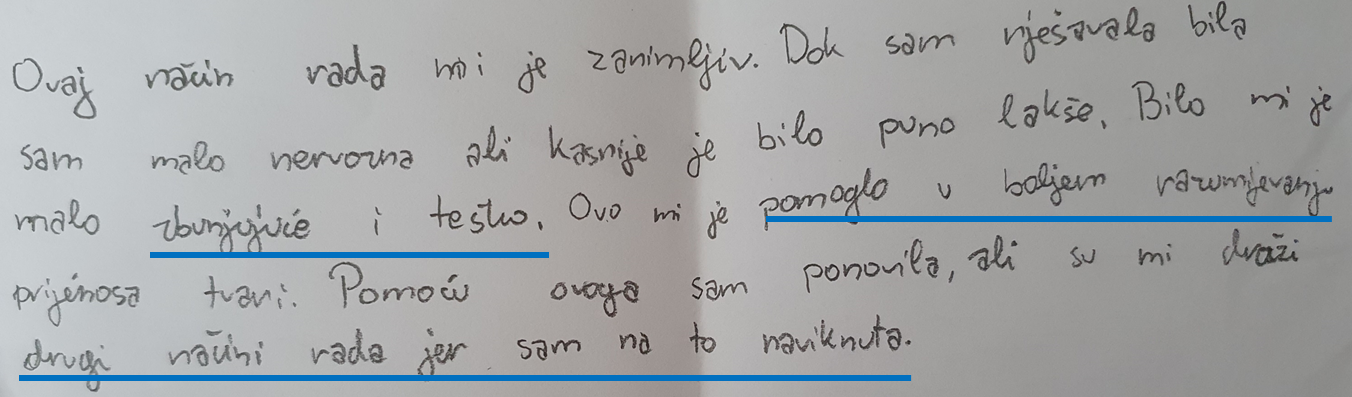 Ovaj način rada mi je zanimljiv. Dok sam rješavala bila
sam malo nervozna ali kasnije je bilo puno lakše. Bilo mi je
malo zbunjujuće i teško. Ovo mi je pomoglo u boljem razumijevanju
prijenosa tvari. Pomoću ovoga sam ponovila, ali su mi draži
drugi načini rada jer sam na to naviknuta.